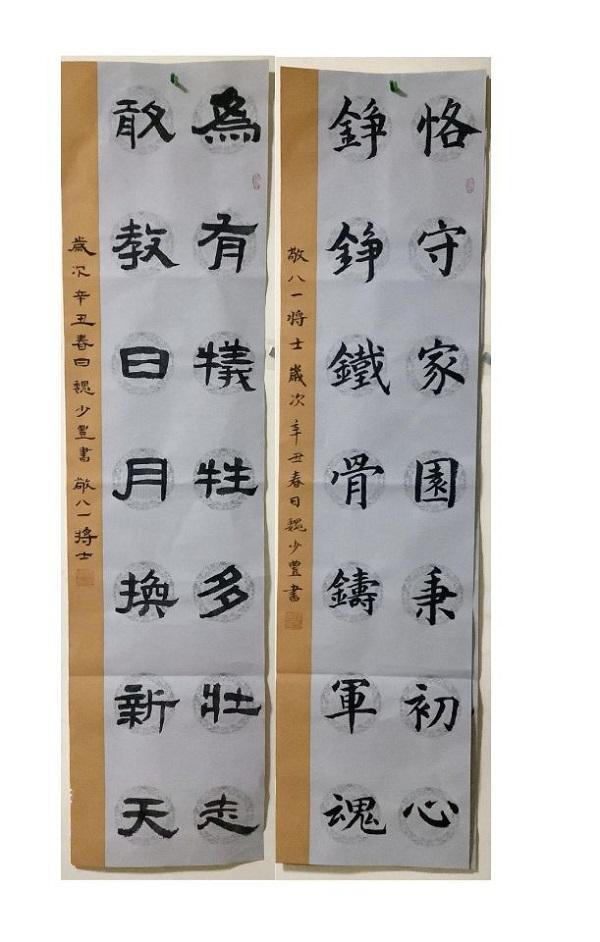 恪守家園秉初心
錚錚鐵骨鑄軍魂
敬八一将士歲次辛丑春日魏少豐書
為有犧牲多壯志
敢教日月換新天
歲次辛丑春日魏少豐書 敬八一將士